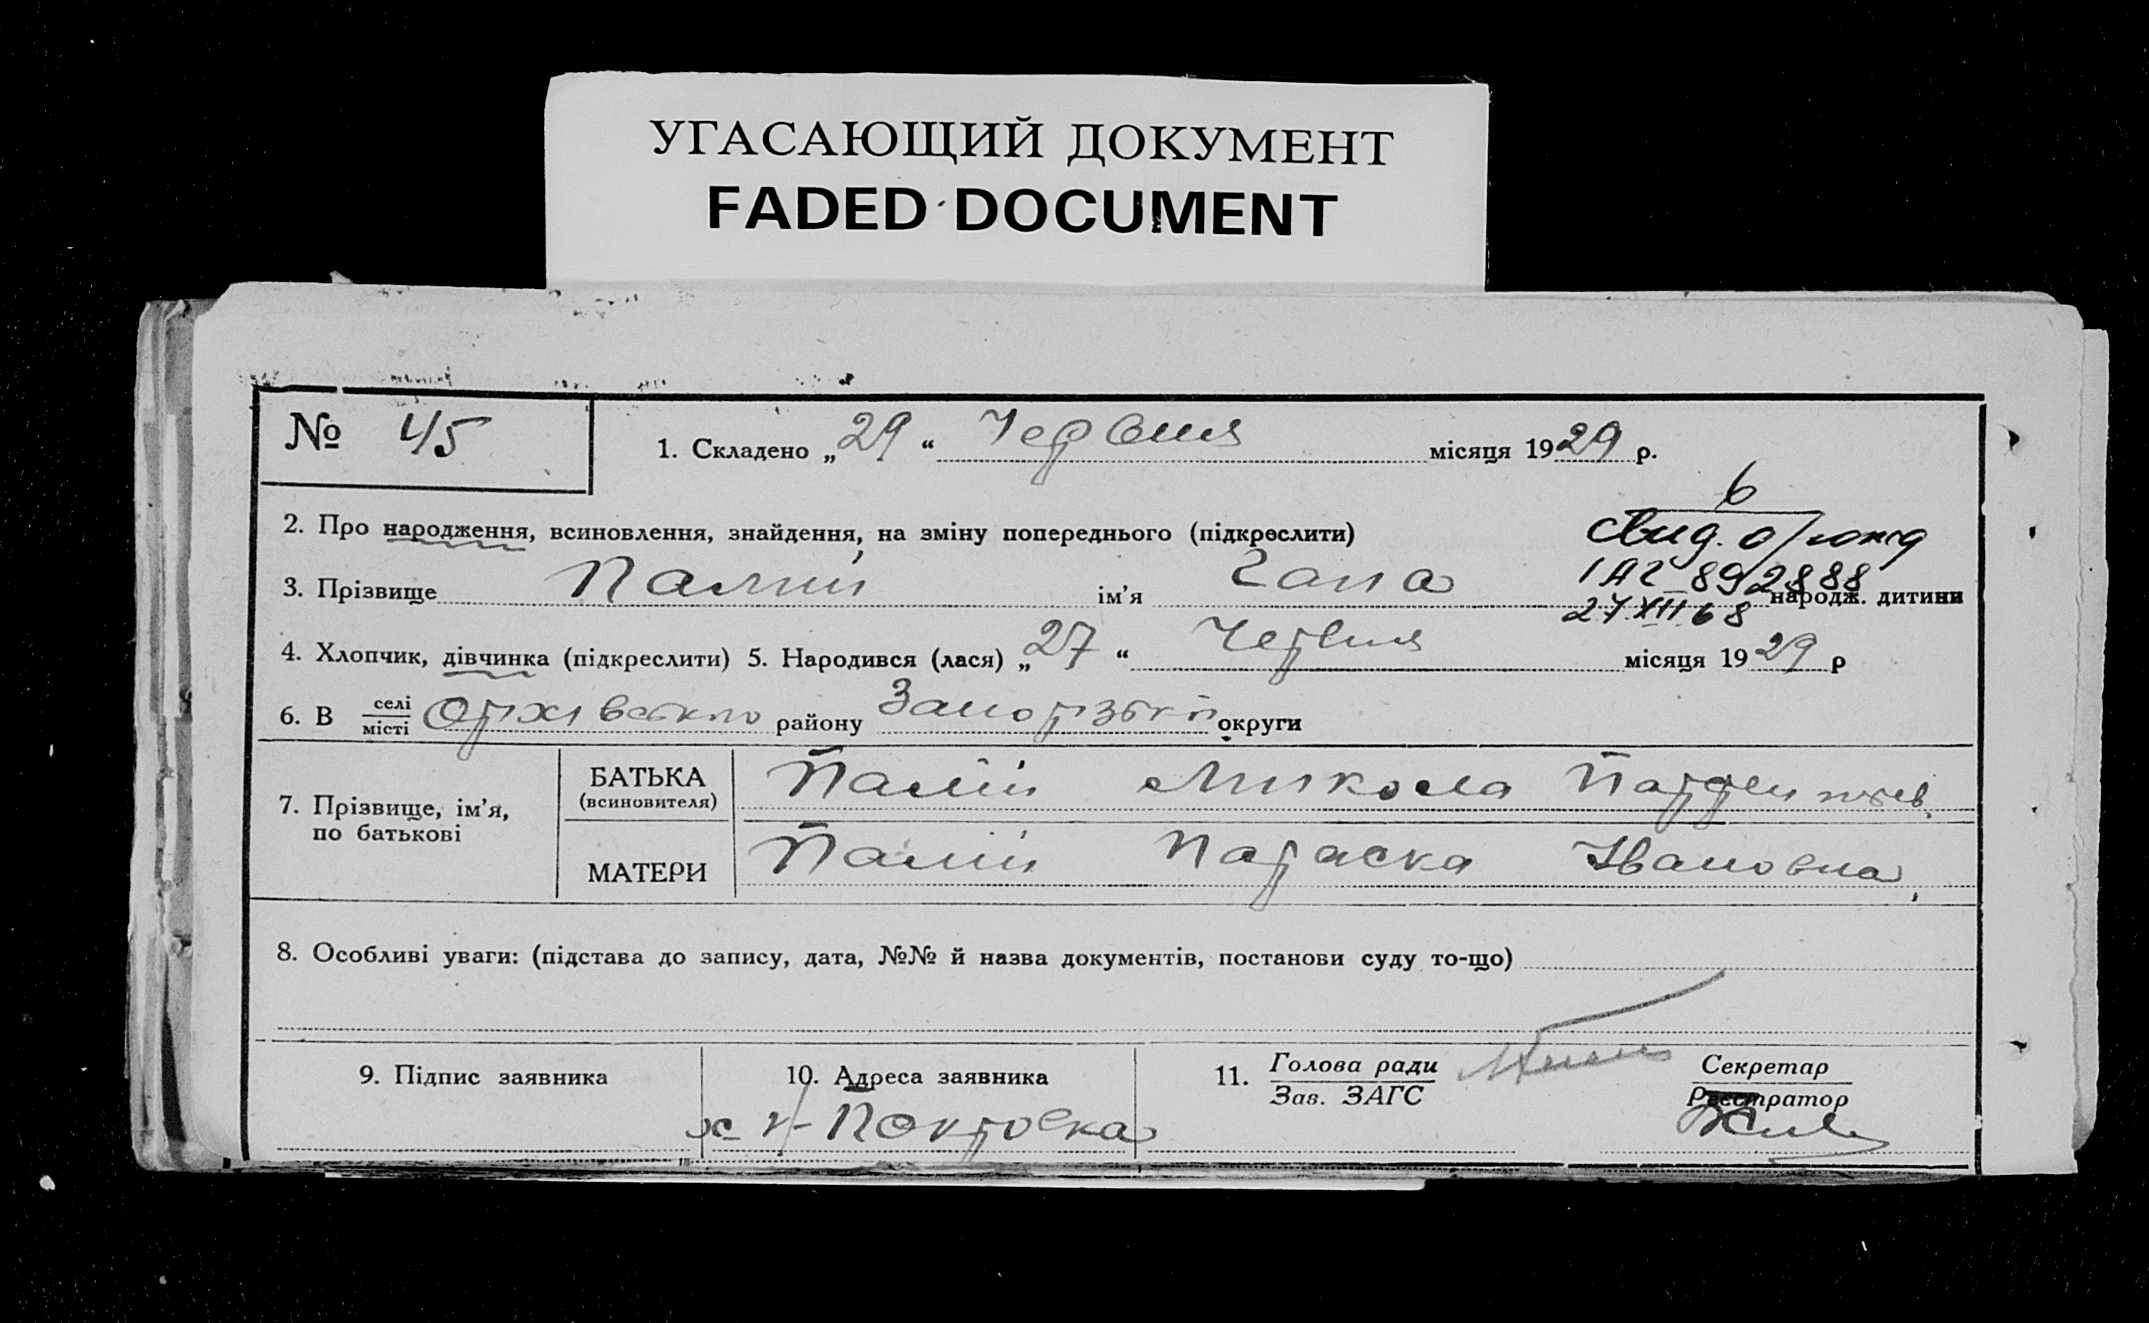 УГАСАЮЩИЙ ДОКУМЕНТ
FADED DOCUMENT
№ 45
1. Складено „ 29 “ Червня місяця 19 29 р.
6
2. Про народження, всиновлення, знайдення, на зміну попереднього (підкреслити)
Свид. о рожд
1 АГ 892888
27.XII 68
3. Прізвище Палій ім’я Гана народж. дитини
4. Хлопчик, дівчинка (підкреслити) 5. Народився (лася) „ 27 “ Червня місяця 19 29 р
6. В селі місті Оріхівського району Запорізькій округи
7. Прізвище, ім’я, по батькові
БАТЬКА (всиновителя) Палій Микола
МАТЕРИ Палій Параска Івановна
8. Особливі уваги: (підстава до запису, дата, №№ й назва документів, постанови суду то-що)
9. Підпис заявника
10. Адреса заявника
Покровка
11. Голова ради
Зав. ЗАГС
Секретар
Реєстратор